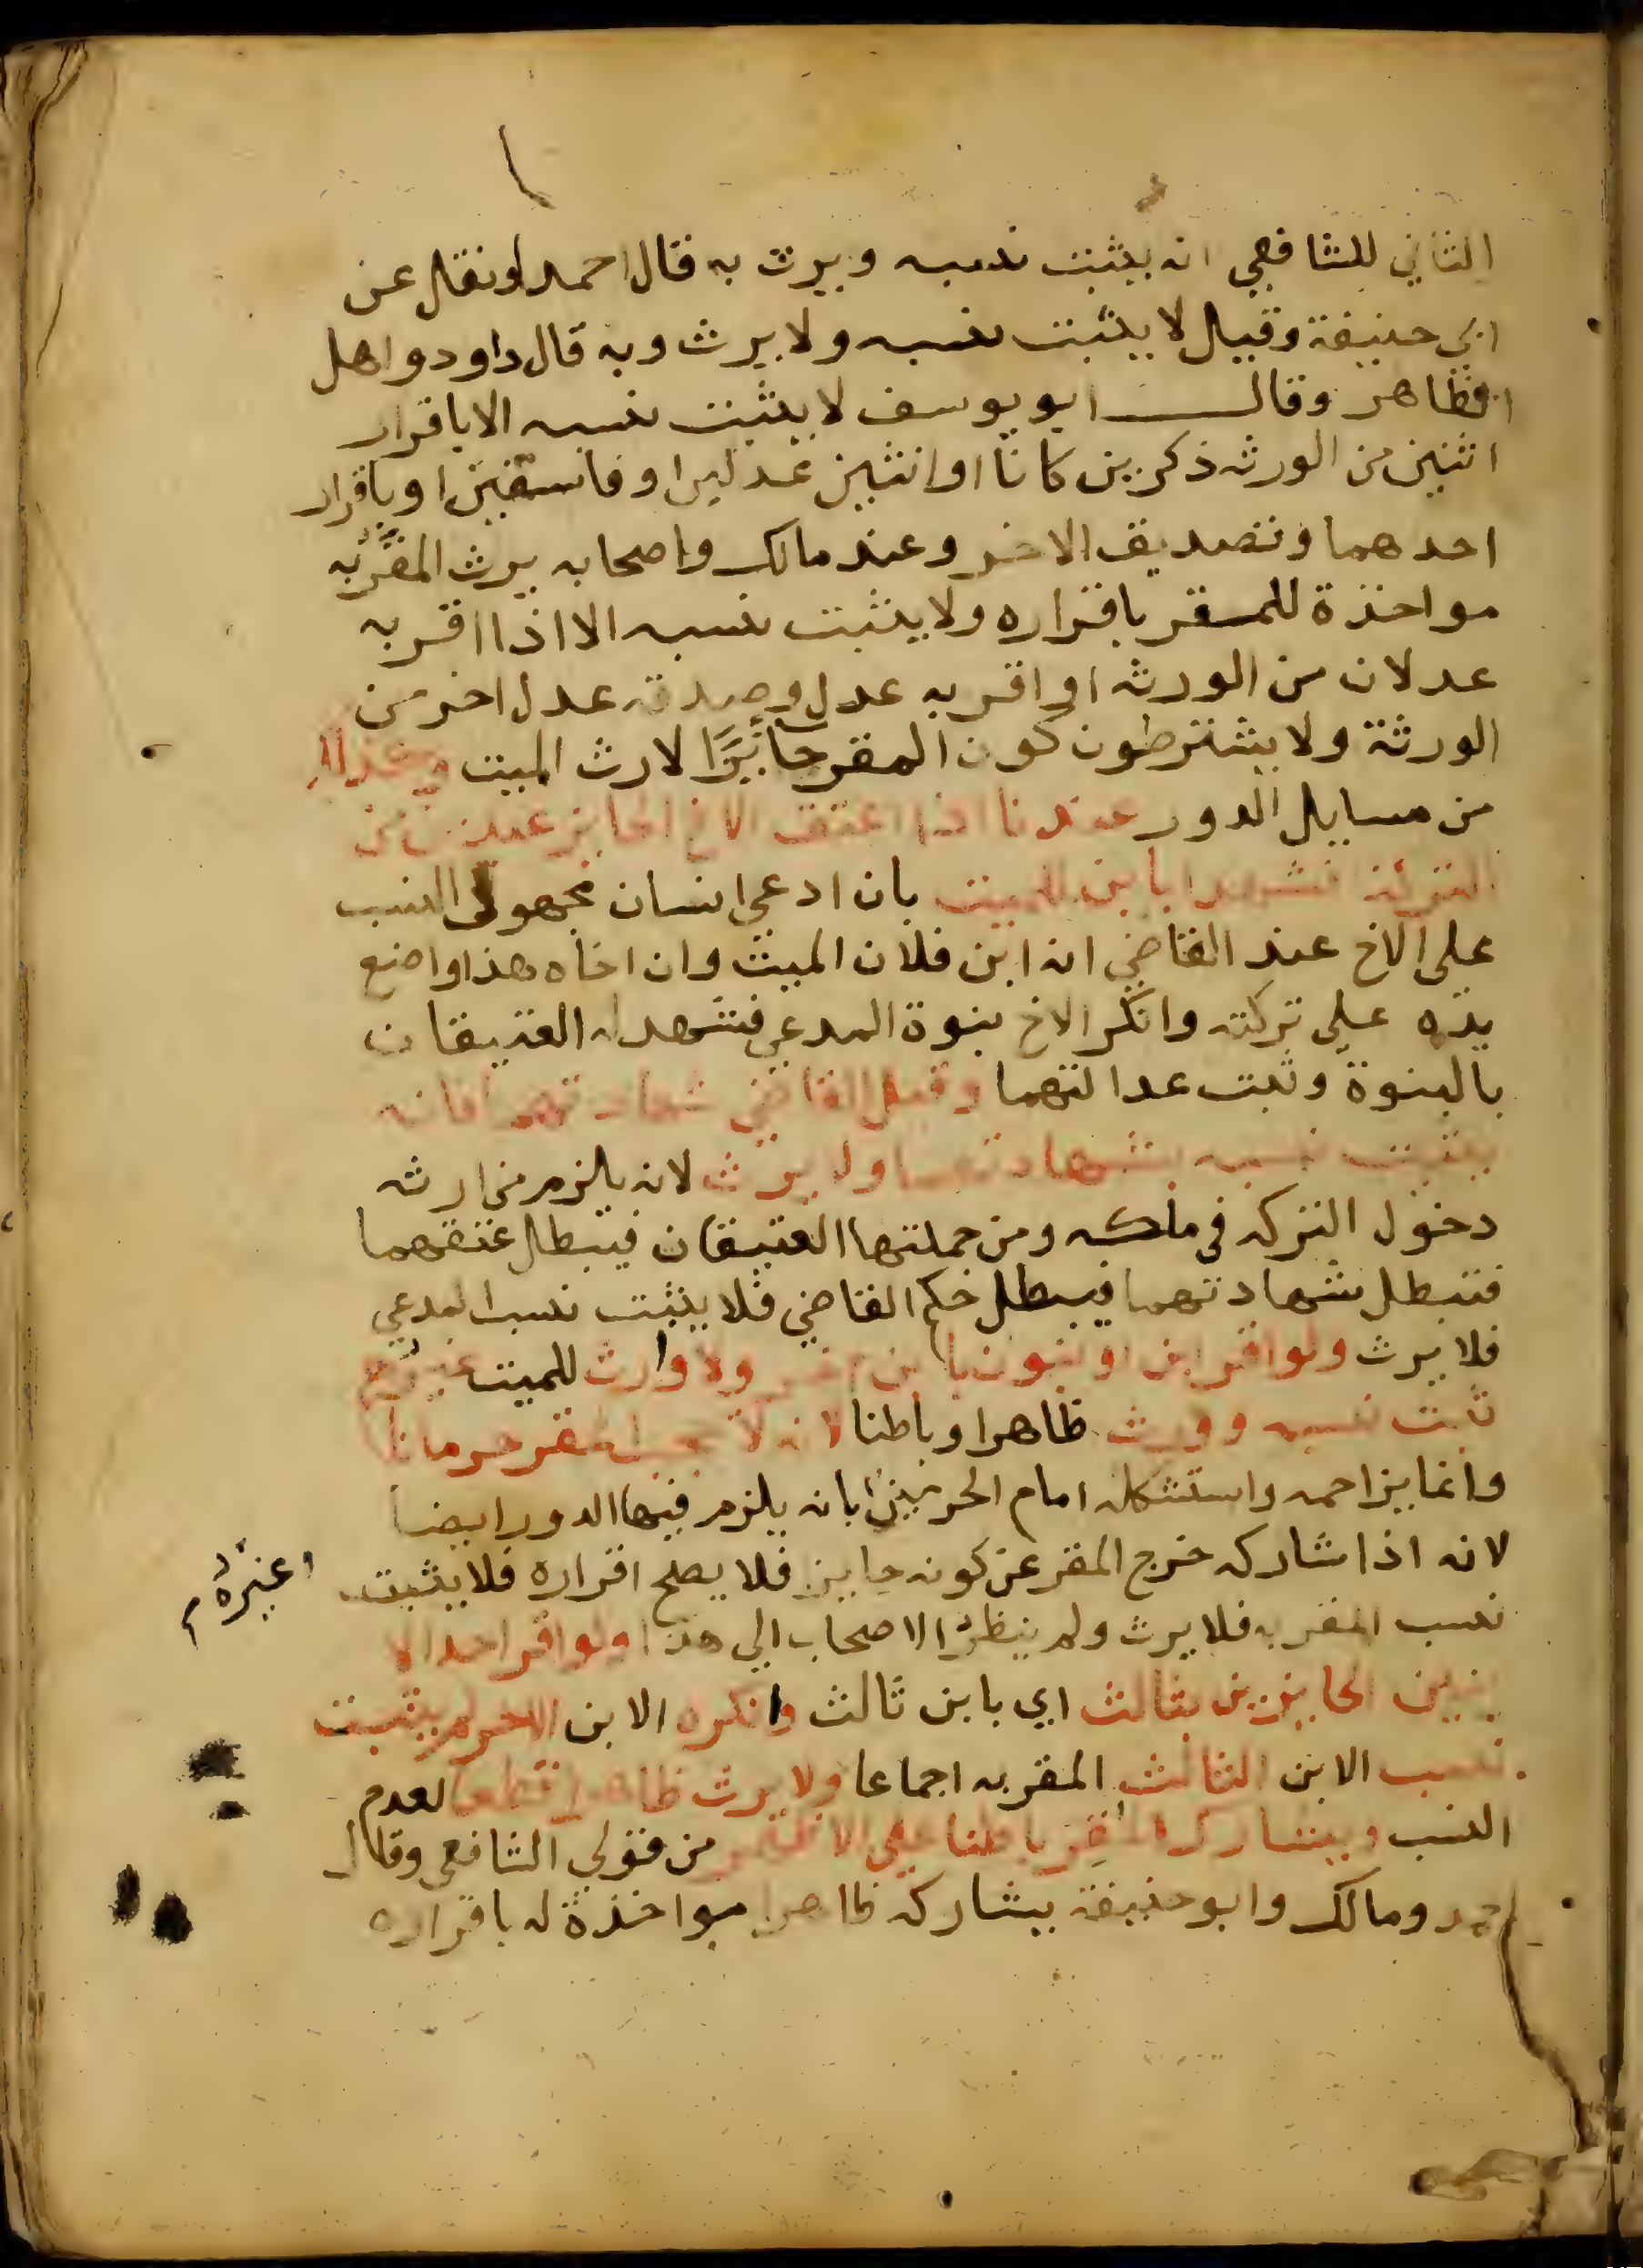 الثاني للشافعي انه يثبت نسبه ويرث به قال احمد ونقل عن
ابي حنيفة وقيل لا يثبت نسبه ولا يرث وبه قال داود واهل
الظاهر وقال ابو يوسف لا يثبت نسبه الا باقرار
اثنين من الورثه ذكرين كانا او انثيين عدلين او فاسقين او باقرار
احدهما وتصديق الاخر وعند مالك واصحابه يرث المقر به
مواخذة للمقر باقراره ولا يثبت نسبه الا اذا اقر به
عدلان من الورثه او اقر به عدل وصدقه عدل اخر من
الورثة ولا يشترطون كون المقر حائزا لارث الميت وكذلك
من مسايل الدور عندنا اذا اعتق الاخ الحايز عبدين من
التركة فشهدا بابن للميت بان ادعى انسان مجهول النسب
على الاخ عند القاضي انه ابن فلان الميت وان اخاه هذا واضع
يده على تركته وانكر الاخ بنوة المدعي فشهد له العتيقان
بالبنوة وثبت عدالتهما وقبل القاضي شهادتهما فانه
يثبت نسبه بشهادتهما ولا يرث لانه يلزم من ارثه
دخول التركه في ملكه ومن جملتها العتيقان فيبطل عتقهما
فتبطل شهادتهما فيبطل حكم القاضي فلا يثبت نسب المدعي
فلا يرث ولو اقر ابن او بنون بابن اخر ولا وارث للميت غيرهم
ثبت نسبه وورث ظاهرا وباطنا لانه لا يحجب المقر حرمانا
وانما يزاحمه واستشكله امام الحرمين بانه يلزم فيها الدور ايضا
لانه اذا شاركه خرج المقر عن كونه حايز فلا يصلح اقراره فلا يثبت
نسب المقر به فلا يرث ولم ينظر الاصحاب الي هذا ولو اقر احد الا
بنين الحايزين بثالث اي بابن ثالث وانكره الابن الاخر لم يثبت
نسب الابن الثالث المقر به اجماعا ولا يرث ظاهرا قطعا لعدم
النسب ويشارك المقر باطنا على الاظهر من قولي الشافعي وقال
احمد ومالك وابو حنيفة يشاركه ظاهرا مواخذة له باقراره
وغيره م